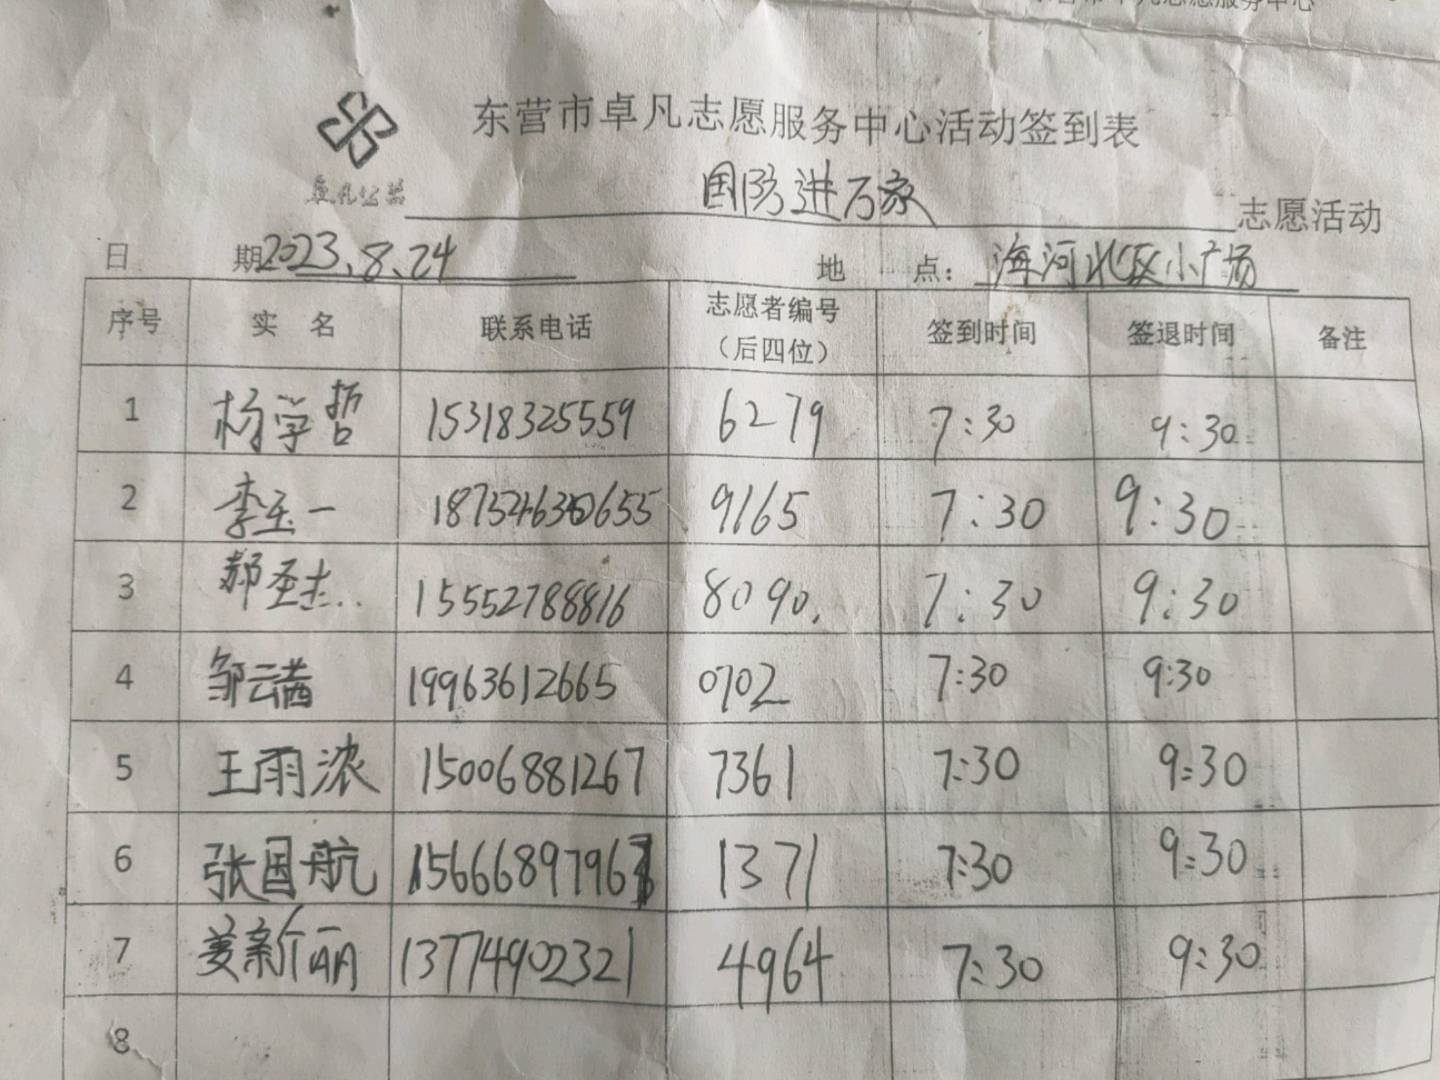 东营市卓凡志愿服务中心活动签到表
卓凡公益
国防进万家 志愿活动
日 期2023.8.24 地 点: 海河北区小广场
序号 实 名 联系电话 志愿者编号(后四位) 签到时间 签退时间 备注
1 杨学哲 15318325559 6279 7:30 9:30
2 李玉一 9165 7:30 9:30
3 郝圣杰.. 15552788816 8090. 7:30 9:30
4 邹云茜 19963612665 0702 7:30 9:30
5 王雨浓 15006881267 7361 7:30 9:30
6 张国航 1371 7:30 9:30
7 姜新丽 13774902321 4964 7:30 9:30
8